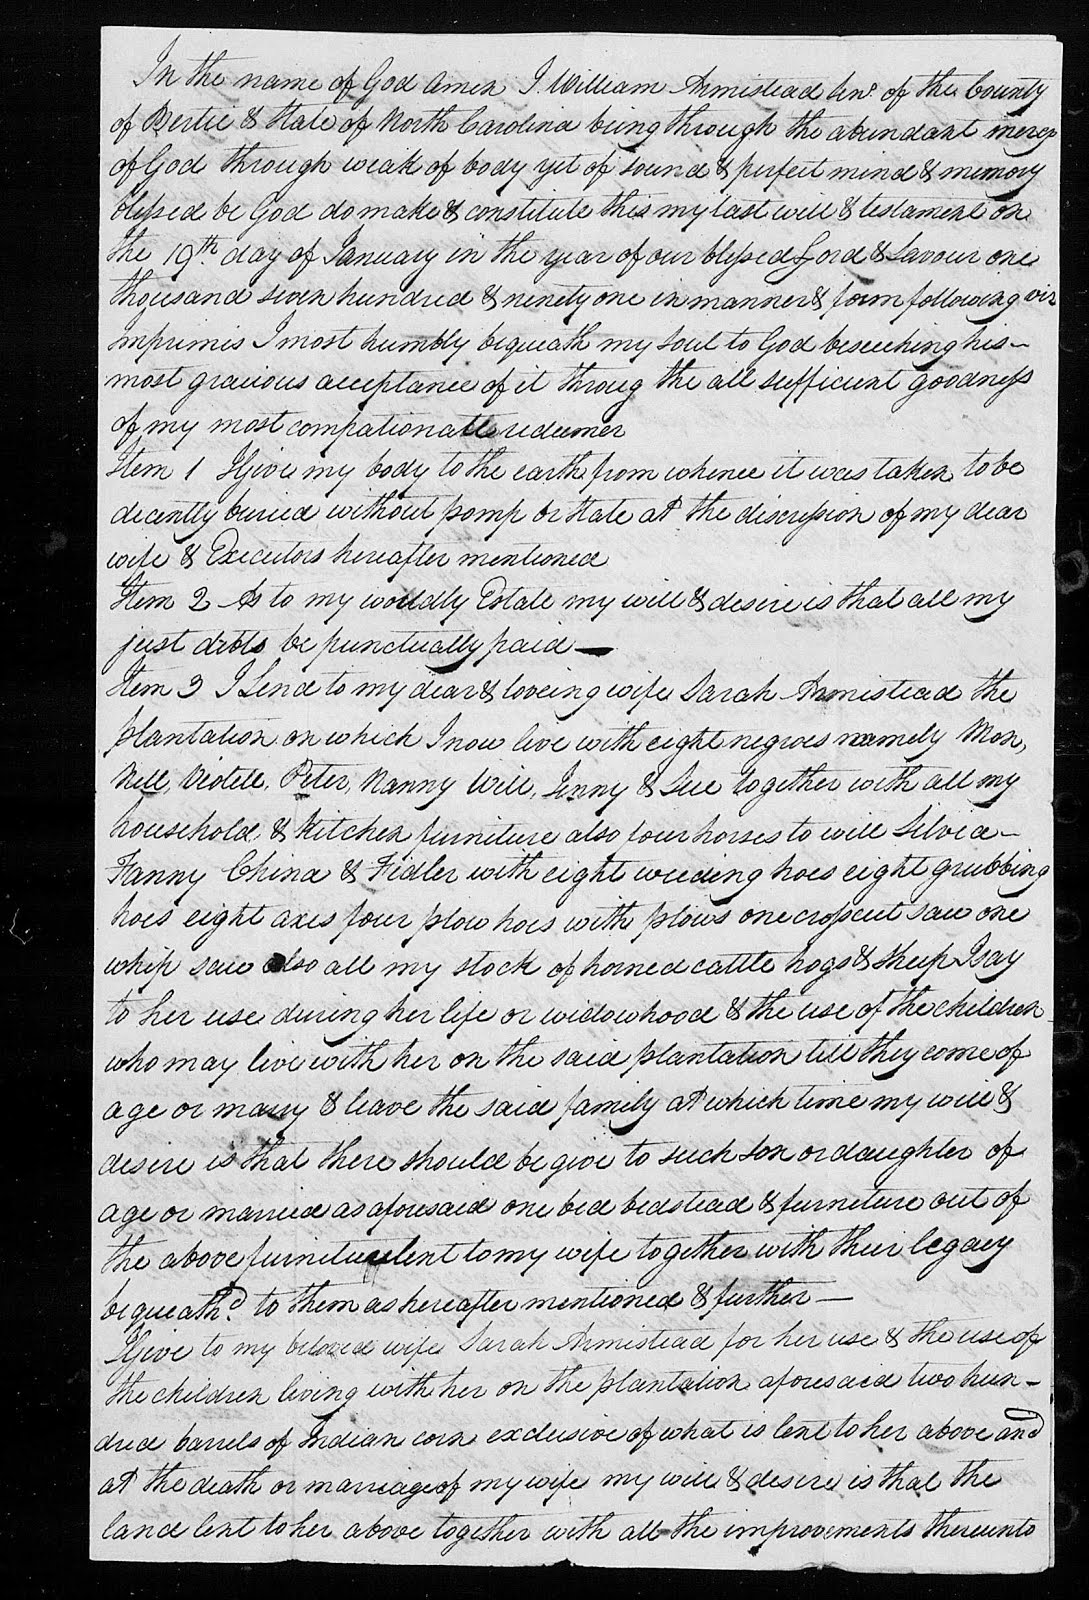 In the name of God Amen I William Armistead Senr. of the County
of Bertie & State of North Carolina being through the abundant mercy
of God through weak of body yet of sound & perfect mind & memory
blessed be God do make & constitute this my last will & testament on
the 19th. day of January in the year of our blessed Lord & Savour one
thousand seven hundred & ninety one in manner & form following viz
Imprimis I most humbly bequeath my soul to God beseeching his –
most gracious acceptance of it throug the all sufficient goodness
of my most compationatte redeemer
Item 1 I Give my body to the earth from whence it was taken to be
decently buried without pomp or State at the discression of my dear
wife & Executors hereafter mentioned
Item 2 As to my worldly Estate my will & desire is that all my
just debts be punctually paid —
Item 3 I Lend to my dear & loveing wife Sarah Armistead the
plantation on which I now live with eight negroes namely Mon,
Nell, Violett, Peter, Nanny Will, Jenny & Sue together with all my
household & Kitchen furniture also four horses to will Silvia –
Fanny China & Fidler with eight weeding hoes eight grubbing
hoes eight axes four plow hoes with plows one cropcut saw one
whip saw also all my stock of horned cattle hogs & sheep I say
to her use during her life or widowhood & the use of the children
who may live with her on the said plantation till they come of
age or marry & leave the said family at which time my will &
desire is that there should be give to such son or daughter of
age or married as aforesaid one bed bedstead & furniture out of
the above furniture lent to my wife together with their legacy
bequeath.d to them as hereafter mentioned & further —
I Give to my beloved wife Sarah Armistead for her use & the use of
the children living with her on the plantation aforesaid two hun –
dred barrels of Indian corn exclusive of what is lent to her above and
at the death or marriage of my wife my will & desire is that the
land lent to her above together with all the improvements thereunto